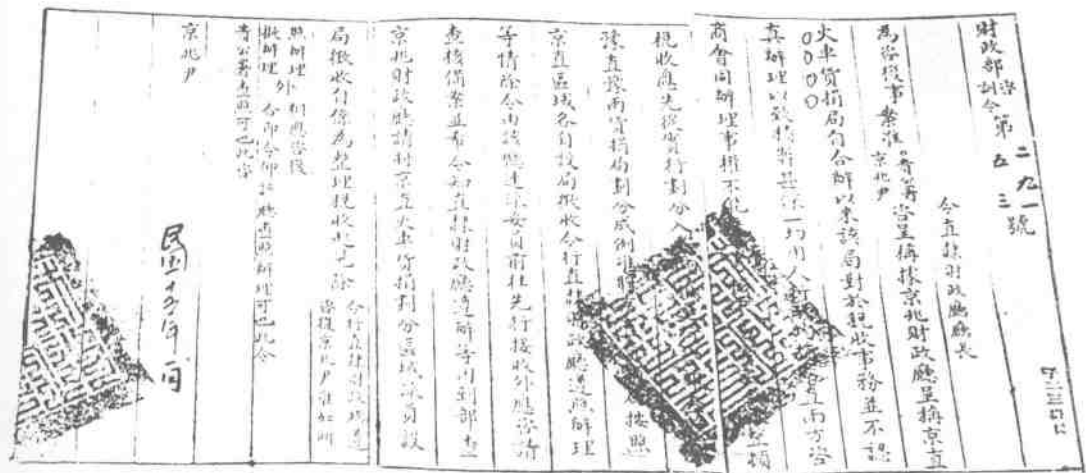 財政部咨訓令第二九一五三號
令直隸財政廳廳長
為咨復事案准貴公署京兆尹咨呈稱據京兆財政廳呈稱京直
火車貨捐局自合辦以來該局對於稅收事務並不認
○○○○
真辦理以致均用人行直兩方咨
商會同辦理事權不
稅收應先從實行劃分入按照
豫直豫兩貨捐局劃分成例准
京直區域各自設局徵收令行直隸財政廳遵照辦理
等情除令由該廳遴派妥員前往先行接收外應咨請
查核備案並希令知直隸財政廳遵辦等因到部查
京兆財政廳請利京直火車貨捐劃分區域派員設
局徵收自係為整理稅收起見除令行直隸財政廳遵咨復京兆尹准如所
照辦理外相應咨復批辦理外合即令仰
貴公署查照可也此咨該廳查照辦理可也此令
京兆尹
民國十五年月